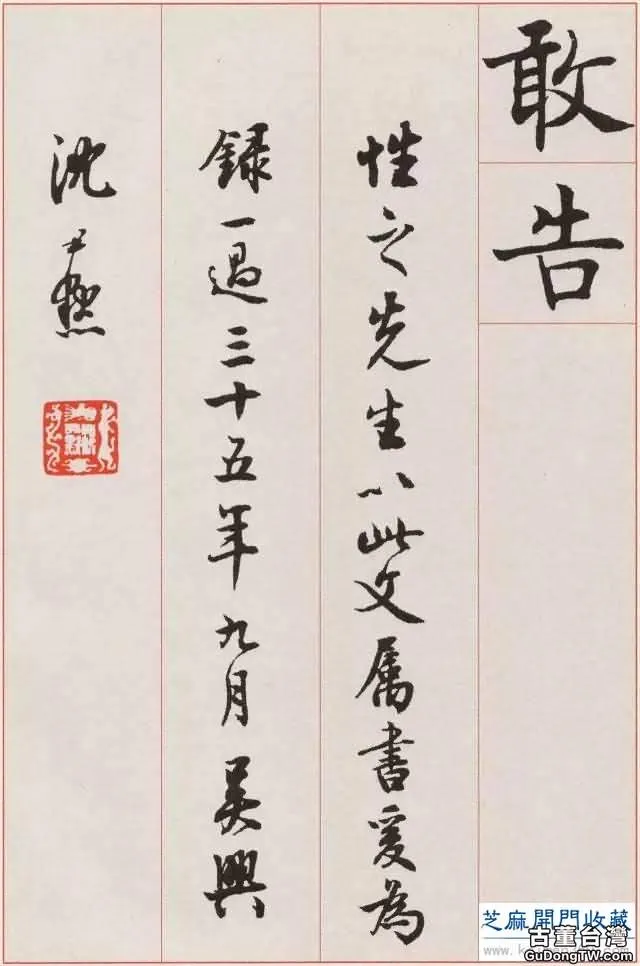 敢告
性之先生以此文属書爰為
録一過三十五年九月吳興
沈尹默
芝麻開門收藏
古董台灣
GuDongTW.com